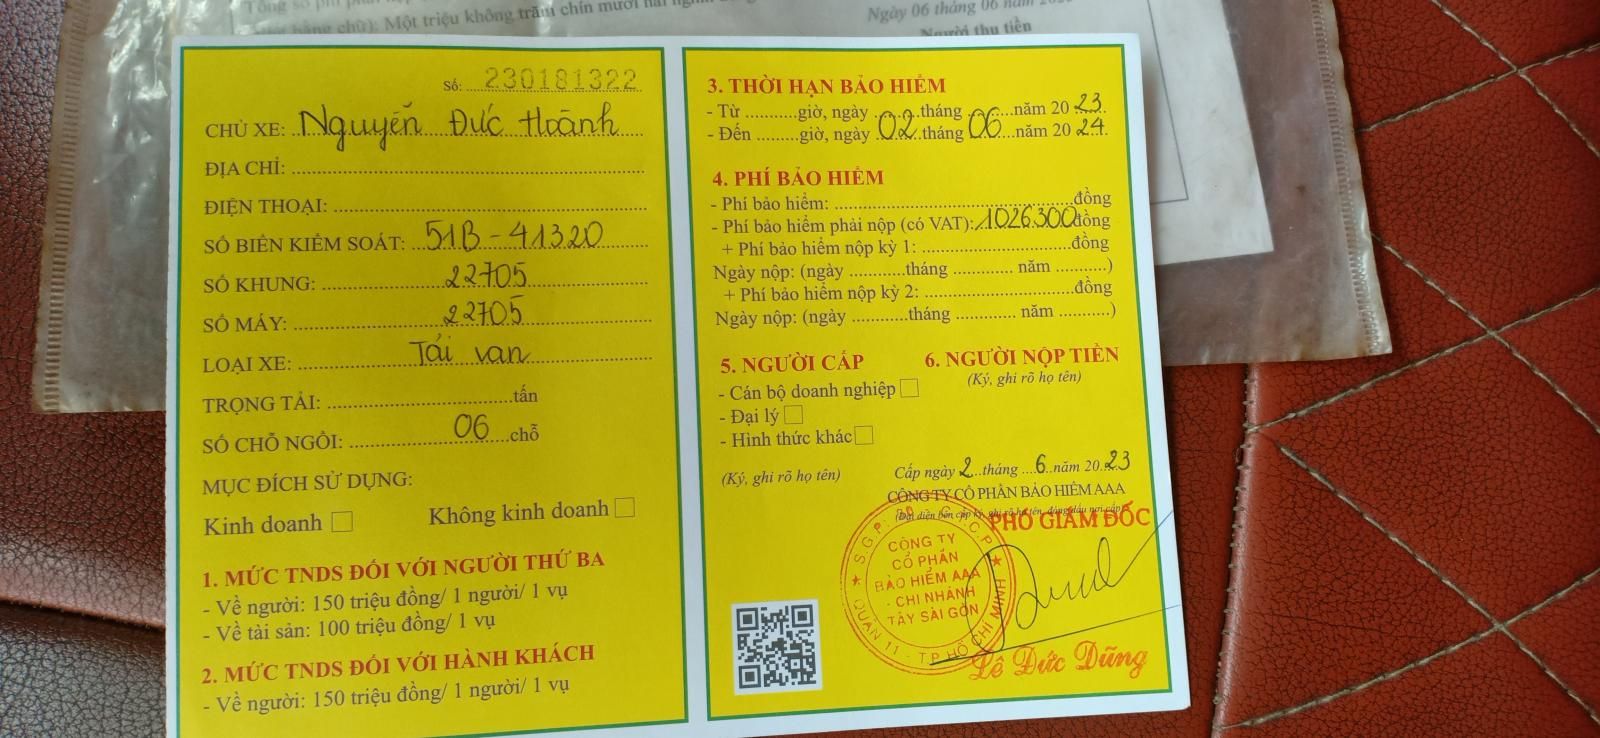 Tổng số phí
chữ): Một triệu không trăm chín mươi hai
Ngày 06 tháng 06 năm
Người thu tiền
Số: 230181322
CHỦ XE: Nguyễn Đức Hoành
ĐỊA CHỈ:
ĐIỆN THOẠI:
SỐ BIỂN KIỂM SOÁT: 51B - 41320
SỐ KHUNG: 22705
SỐ MÁY: 22705
LOẠI XE: Tải van
TRỌNG TẢI: tấn
SỐ CHỖ NGỒI: 06 chỗ
MỤC ĐÍCH SỬ DỤNG:
Kinh doanh Không kinh doanh
1. MỨC TNDS ĐỐI VỚI NGƯỜI THỨ BA
- Về người: 150 triệu đồng/ 1 người/ 1 vụ
- Về tài sản: 100 triệu đồng/ 1 vụ
2. MỨC TNDS ĐỐI VỚI HÀNH KHÁCH
- Về người: 150 triệu đồng/ 1 người/ 1 vụ
3. THỜI HẠN BẢO HIỂM
- Từ ..........giờ, ngày ........tháng ........năm 20 23.
- Đến ..........giờ, ngày 02 tháng 06 năm 20 24.
4. PHÍ BẢO HIỂM
- Phí bảo hiểm: đồng
- Phí bảo hiểm phải nộp (có VAT): 1026300 đồng
+ Phí bảo hiểm nộp kỳ 1: đồng
Ngày nộp: (ngày ..........tháng ........... năm ..........)
+ Phí bảo hiểm nộp kỳ 2: đồng
Ngày nộp: (ngày ..........tháng ........... năm ..........)
5. NGƯỜI CẤP 6. NGƯỜI NỘP TIỀN
(Ký, ghi rõ họ tên)
- Cán bộ doanh nghiệp
- Đại lý
- Hình thức khác
(Ký, ghi rõ họ tên)
Cấp ngày 2 tháng 6 năm 20 23
CÔNG TY CỔ PHẦN BẢO HIỂM AAA
(Đại diện bên cấp ký, ghi rõ họ tên, đóng dấu nơi cấp)
PHÓ GIÁM ĐỐC
CÔNG TY
CỔ PHẦN
BẢO HIỂM AAA
- CHI NHÁNH
TÂY SÀI GÒN
QUẬN 11 - T.P HỒ CHÍ MINH
Lê Đức Dũng